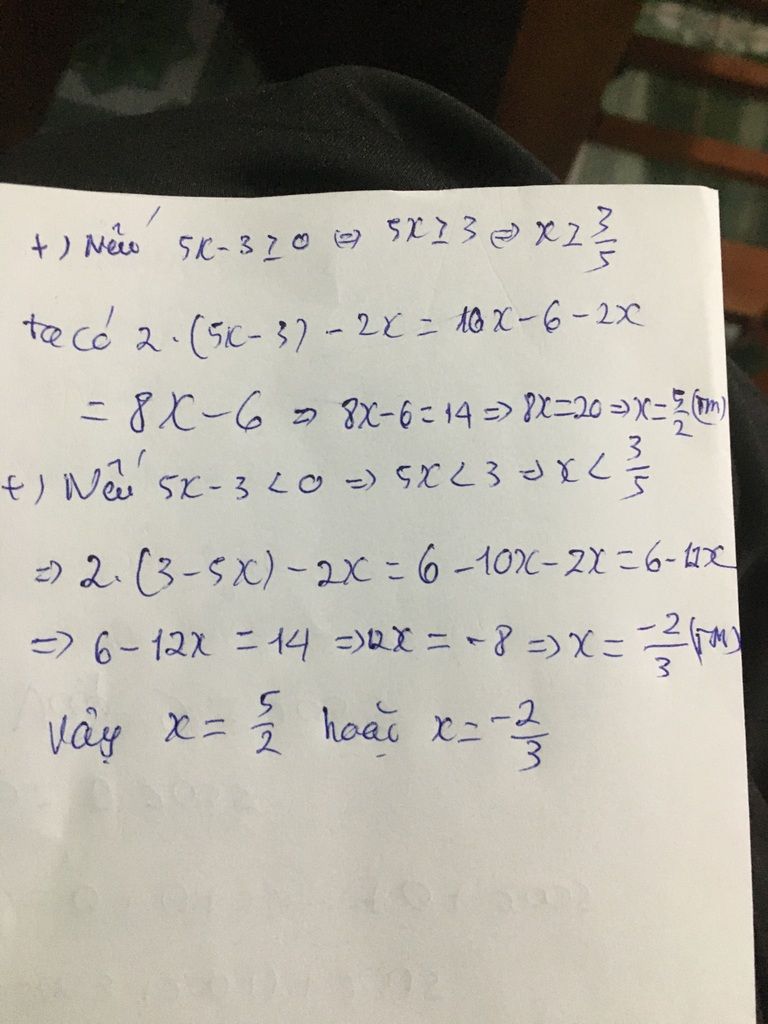 +) Nếu 5x-3≥0 ⇔ 5x≥3 ⇔ x≥3/5
ta có 2.(5x-3)-2x=10x-6-2x
=8x-6 ⇒ 8x-6=14 ⇒ 8x=20 ⇒ x=5/2 (TM)
+) Nếu 5x-3<0 ⇒ 5x<3 ⇒ x<3/5
⇒ 2.(3-5x)-2x=6-10x-2x=6-12x
⇒ 6-12x=14 ⇒ 12x=-8 ⇒ x=-2/3 (TM)
Vậy x=5/2 hoặc x=-2/3